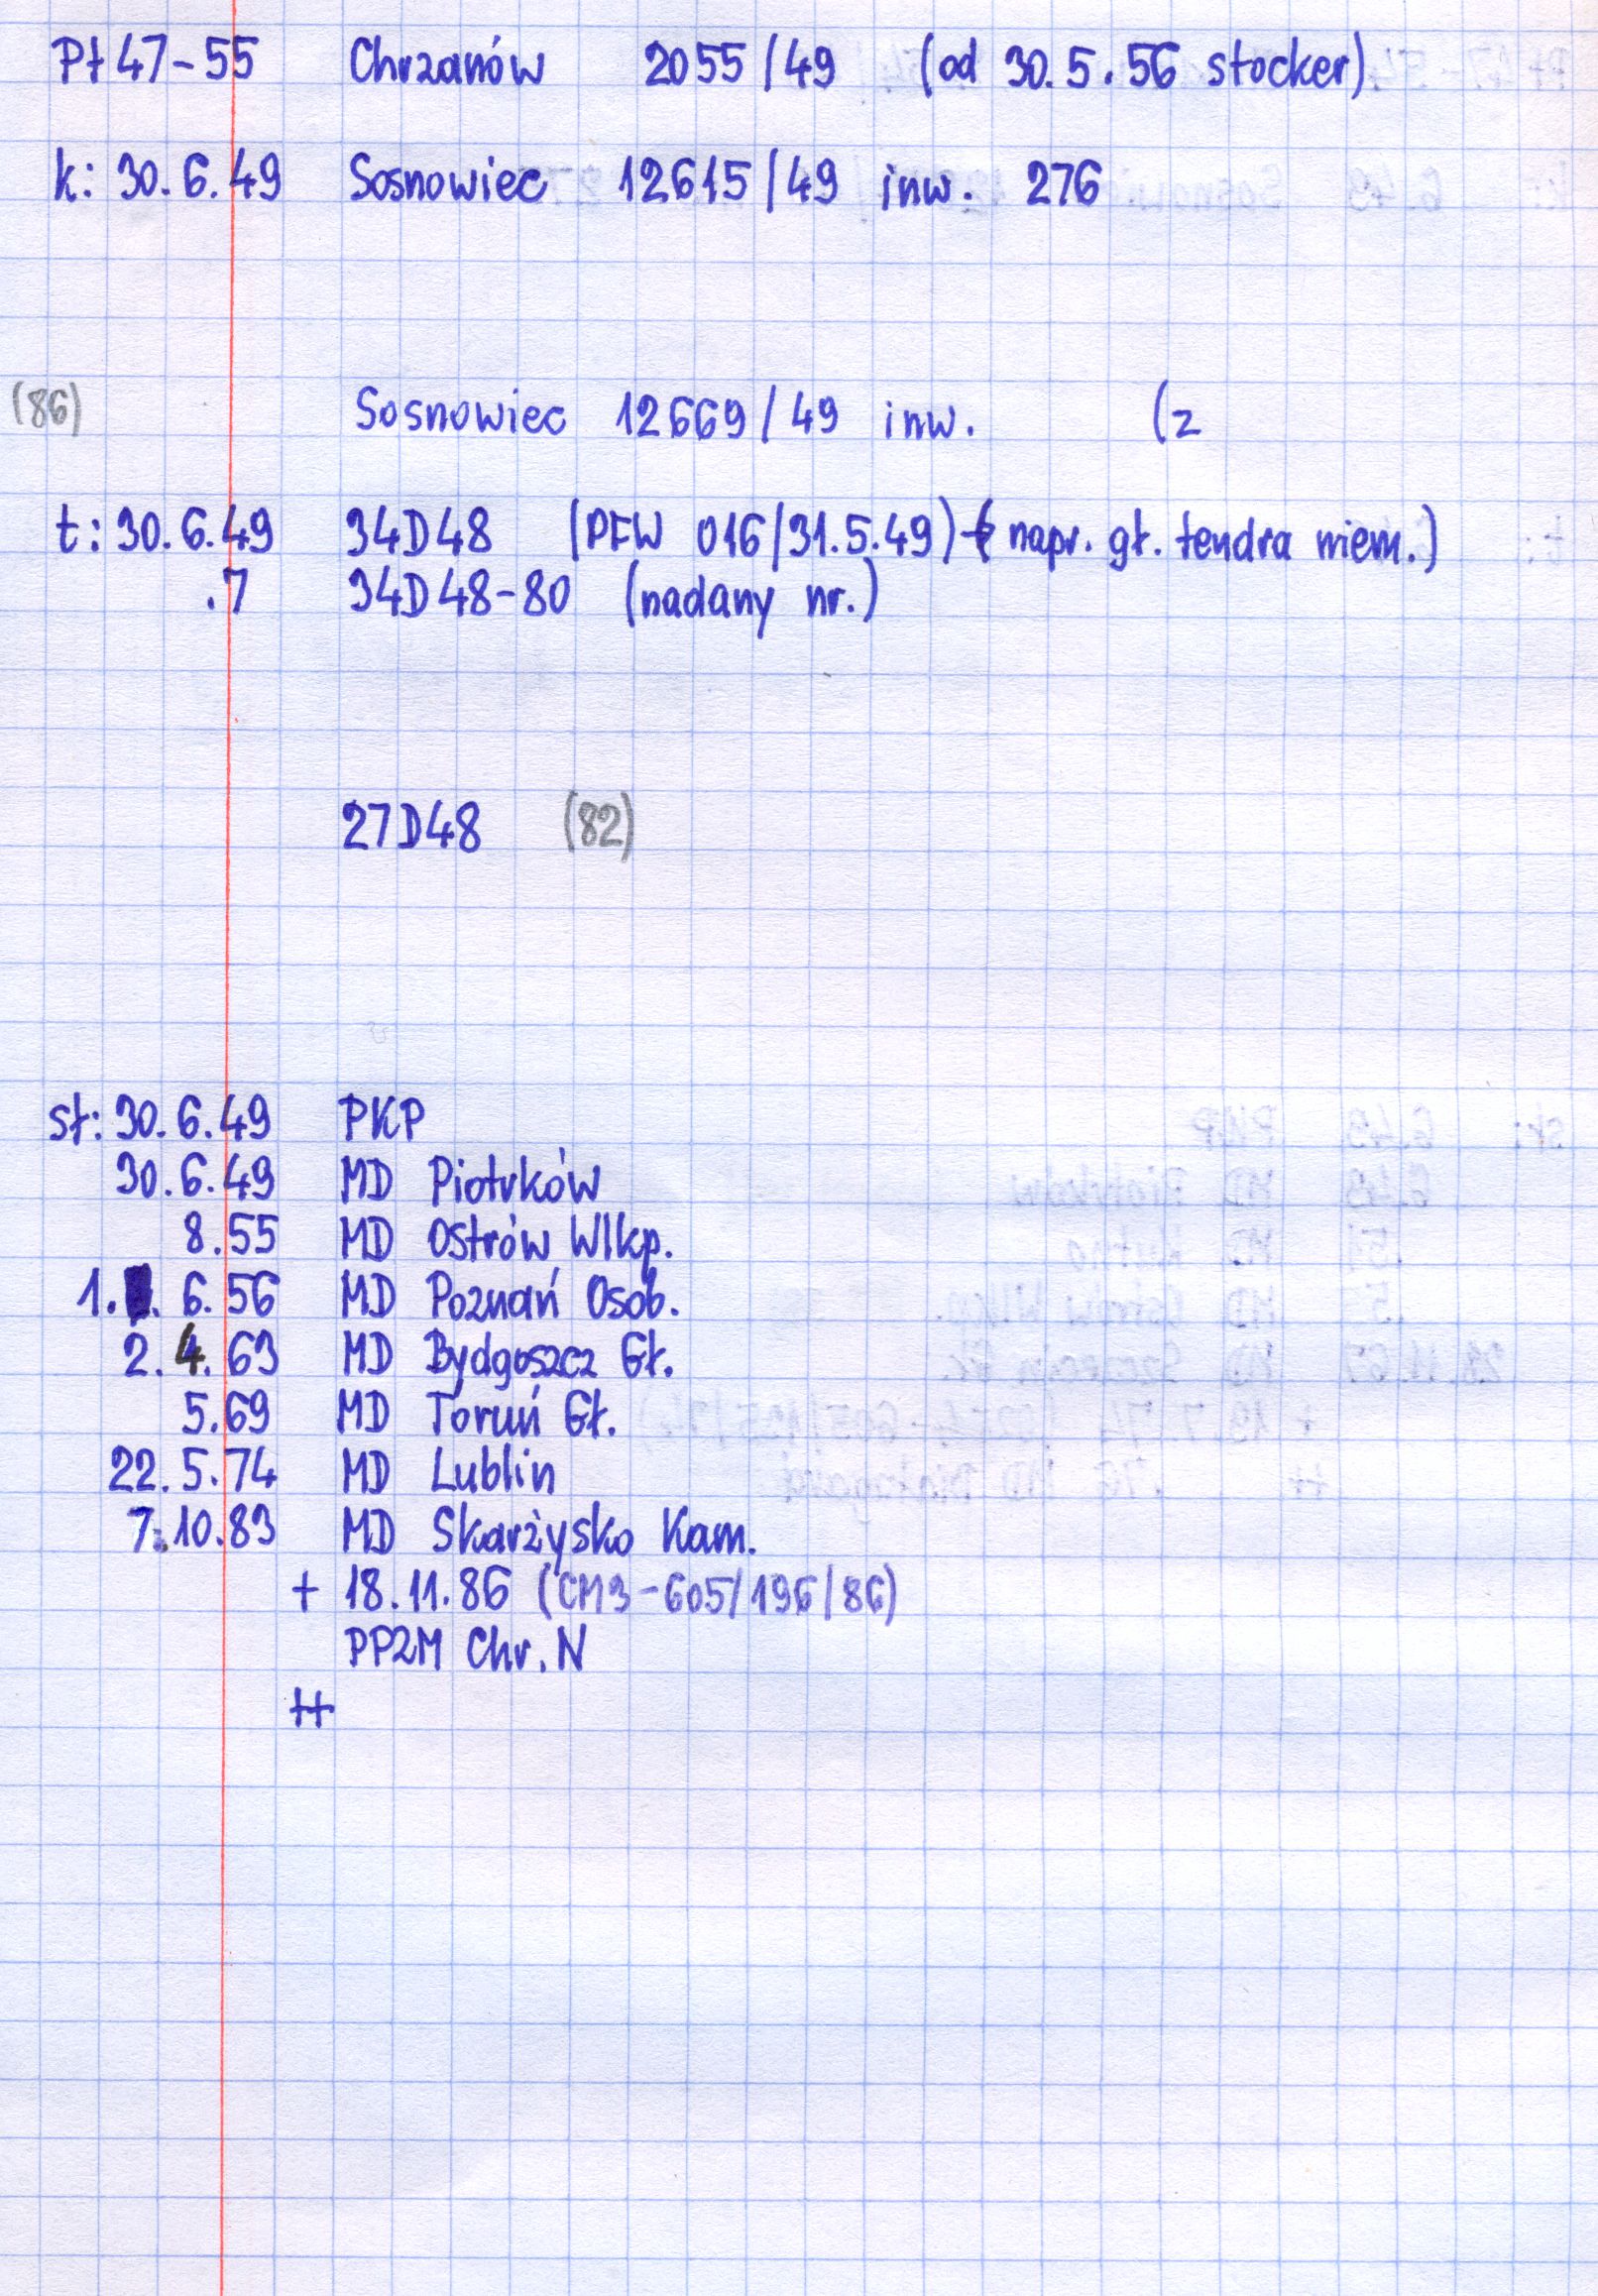 Pt47-55 Chrzanów 2055/49 (od 30.5.56 stocker)
k: 30.6.49 Sosnowiec 12615/49 inw. 276
(86) Sosnowiec 12669/49 inw. (z
t: 30.6.49 34D48 (PFW 016/31.5.49) ( napr. gł. tendra niem.)
.7 34D48-80 (nadany nr.)
27D48 (82)
sł: 30.6.49 PKP
30.6.49 MD Piotrków
8.55 MD Ostrów Wlkp.
1. 6.56 MD Poznań Osob.
2.4.63 MD Bydgoszcz Gł.
5.69 MD Toruń Gł.
22.5.74 MD Lublin
7.10.83 MD Skarżysko Kam.
+ 18.11.86 (CM3-605/196/86)
PP2M Chr. N
++